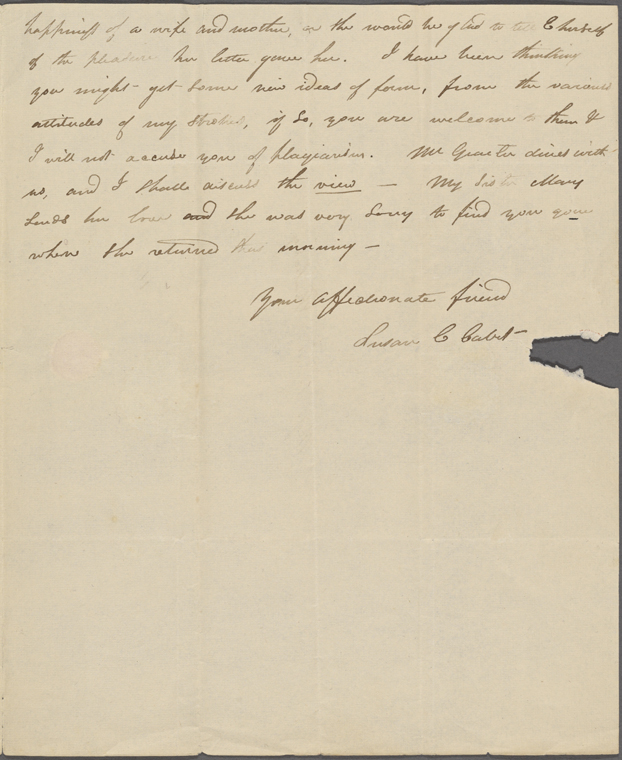 happiness of a wife and mother, or she would be glad to tell C herself
of the pleasure her letter gave her. I have been thinking
you might get some new ideas of form, from the various
attitudes of my strokes, if so, you are welcome to them &
I will not accuse you of plagiarism. Mr Graeter dines with
us, and I shall discuss the view — My Sister Mary
sends her love and she was very sorry to find you gone
when she returned this morning —
Your affectionate friend
Susan C Cabot